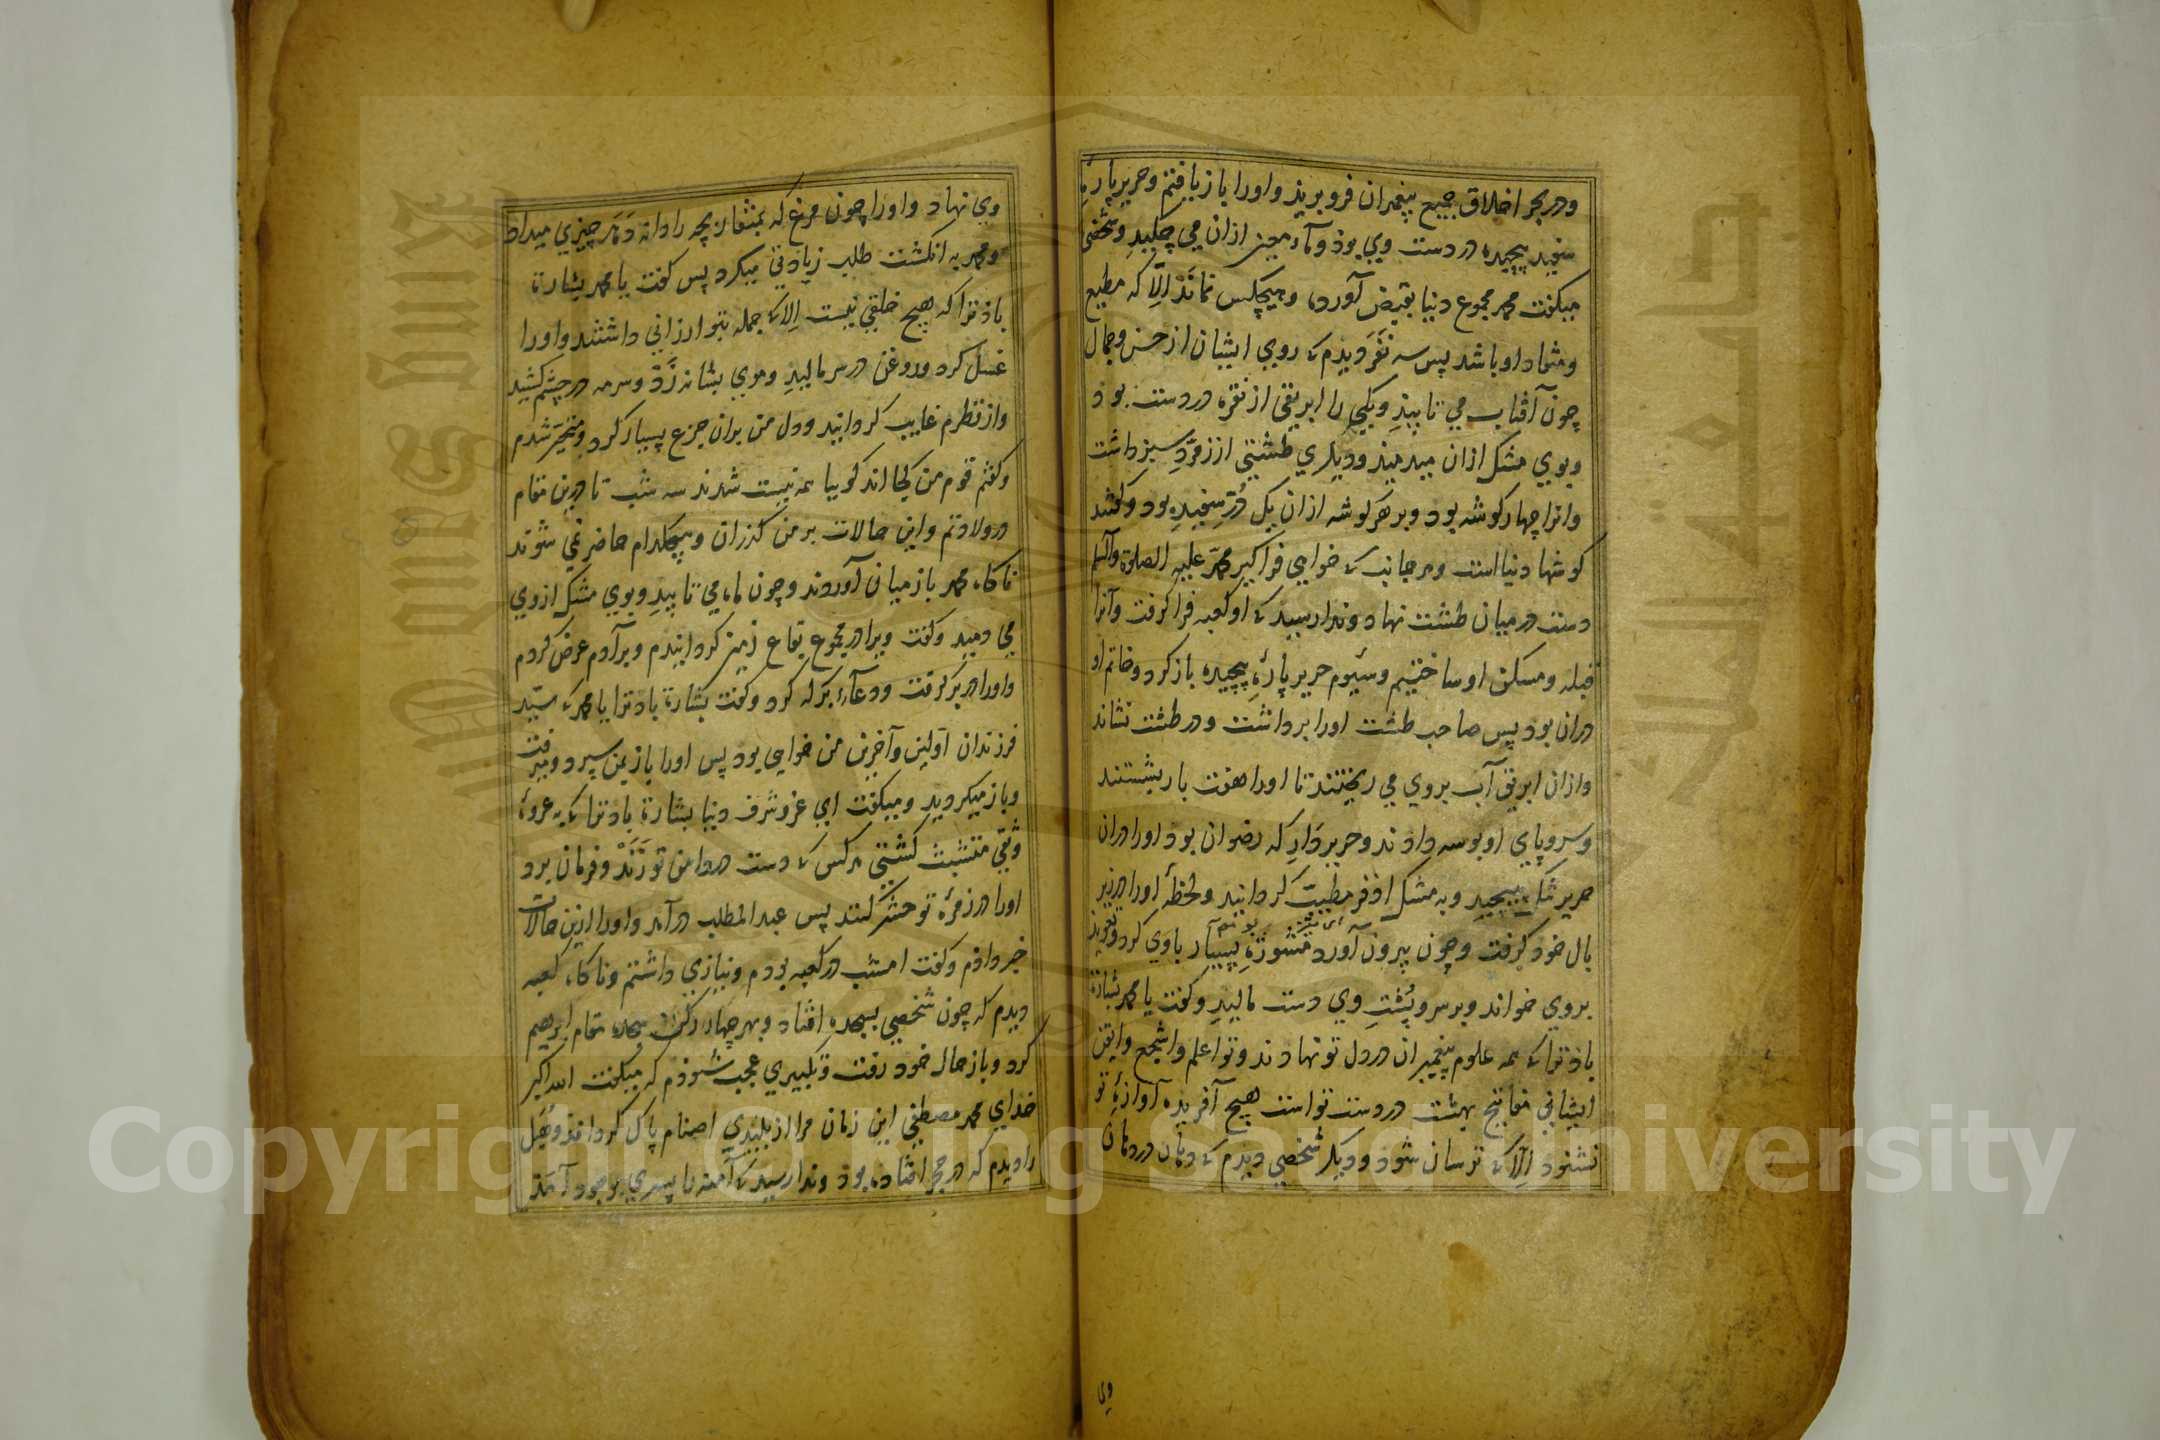 ودر بحر اخلاق جمیع پیغمبران فرو برید و اورا باز یافتم و حریر پارهٔ
سفید پیچیده در دست وی بوذ و ماء معین ازان می چکید و شخصی
میکفت محمد مجموع دنیا بقبض آورد و هیچکس نماند الا که مطیع
ومنقاد او باشد پس سه نفر دیدم که روی ایشان از حسن وجمال
چون آفتاب می تابید و یکی را ابریقی از نقره در دست بود
وبوی مشک ازان میدمید ودیکری طشتی از زمرد سبز داشت
وانرا چهار کوشه بود وبر هر کوشه ازان یک در سفید بود وکفتند
کوشها دنیا است وهر جانب که خواهی فرا کیر محمد علیه الصلوة والسلام
دست در میان طشت نهاد وندا رسید که او کعبه فرا کرفت وآنرا
قبله ومسکن او ساختیم وسیوم حریر پارهٔ پیچیده باز کرد وخاتم او
دران بود پس صاحب طشت اورا برداشت ودر طشت نشاند
وازان ابریق آب بروی می ریختند تا اورا هفت بار بشستند
وسر وپای او بوسه دادند وحریر دار که رضوان بود اورا دران
حریر پیچید وبه مشک اذفر مطیب کردانید ولحظهٔ اورا در زیر
بال خود کرفت وچون بیرون آورد مشورة بسیار باوی کرد وتعویذ
بروی خواند وبر سر وپشت وی دست مالید وکفت یا محمد بشارة
باذ ترا که همه علوم پیغمبران در دل تو نهادند وتو اعلم واشجع وایقن
ایشانی مفاتیح بهشت در دست تو است هیچ آفریده آوازهٔ تو
نشنود الا که ترسان شود ودیکر شخصی دیدم که دهان در دهان
وی
وی نهاد واورا چون مرغ که بمنقار بچه را دانه دهد چیزی میداد
ومحمد به انکشت طلب زیادتی میکرد پس کفت یا محمد بشارة
باذ ترا که هیچ خلقی نیست الا که جمله بتو ارزانی داشتند واورا
غسل کرد وروغن در سر مالید وموی بشانه زد وسرمه در چشم کشید
واز نظرم غایب کردانید ودل من بران جزع بسیار کرد ومتحیر شدم
وکفتم قوم من کجا اند کوییا همه نیست شدند سه شب تا درین مقام
در ولادتم واین حالات بر من کذران وهیچکدام حاضر نمی شوند
ناکاه محمد باز میان آوردند وچون ماه می تابید وبوی مشک از وی
می دمید وکفت ویرا در مجموع بقاع زمین کردانیدم وبر آدم عرض کردم
واورا در بر کرفت ودعاء برکه کرد وکفت بشارة باد ترا یا محمد که سید
فرزندان اولین وآخرین من خواهی بود پس اورا باز بمن سپرد ومیرفت
وباز میکردید ومیکفت ای عز وشرف دنیا بشارة باد ترا که به عروهٔ
وثقی متشبث کشتی هر کس که دست در دامن تو زند وفرمان برد
اورا در زمرهٔ تو حشر کنند پس عبد المطلب در آمد واورا ازین حالات
خبر دادم وکفت امشب در کعبه بودم ونیازی داشتم وناکاه کعبه
دیدم که چون شخصی بسجده افتاد وبهر چهار رکن سجده مقام ابرهیم
کرد وباز حال خود رفت وتکبیری عجب شنودم که میکفت الله اکبر
خذای محمد مصطفی این زمان مرا از پلیدی اصنام پاک کرداند وهبل
را دیدم که در حجر افتاده بوذ وندا رسید که آمنه را پسری بوجود آمذ